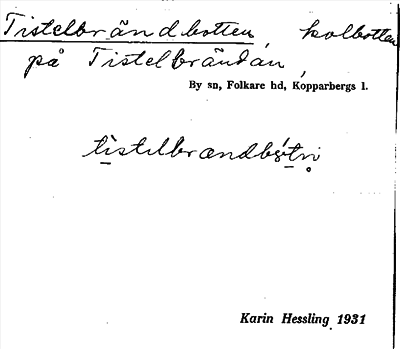 Tistelbrändbotten, kolbotten
på Tistelbrändan,
By sn, Folkare hd, Kopparbergs l.
Karin Hessling 1931